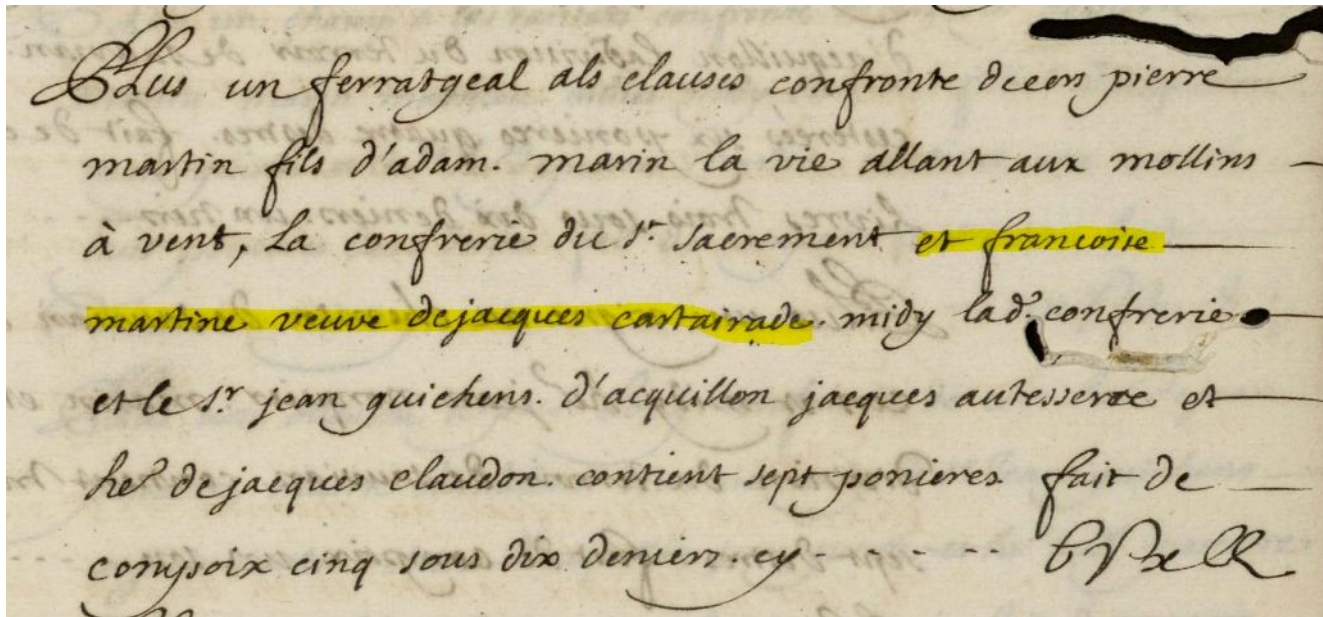 Plus un ferratgeal als clauses confronte de cers pierre
martin fils d'adam. marin la vie allant aux mollins
à vent, la confrerie du st sacrement et francoise
martine veuve de jacques cartairade. midy lad. confrerie
et le sr. jean guichens. d'acquillon jacques autesserre et
he de jacques claudon. contient sept ponieres fait de
compoix cinq sous dix deniers. cy